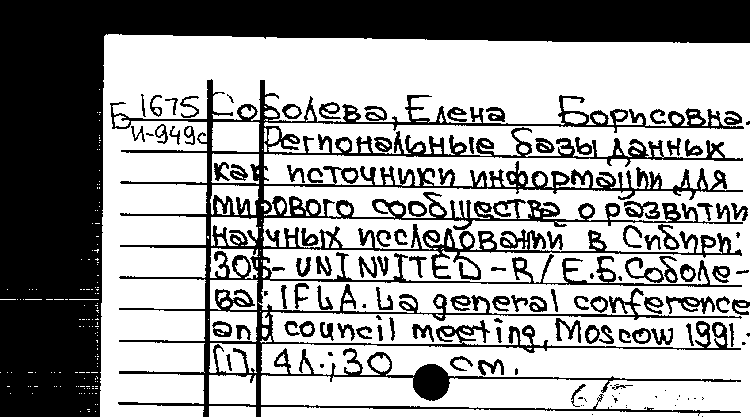 Б 1675 Соболева, Елена Борисовна.
И-949с Региональные базы данных
как источники информации для
мирового сообщества о развитии
научных исследований в Сибири:
305-UNINVITED-R/Е.Б.Соболе-
ва; IFLA. La general conference
and council meeting, Moscow 1991.-
[1], 4л.; 30 см.